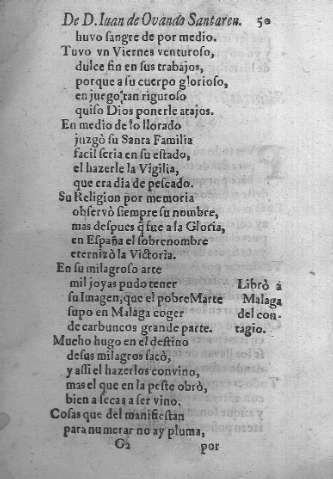 De D. Iuan de Ovando Santaren. 50
huvo sangre de por medio.
Tuvo vn Viernes venturoso,
dulce fin en sus trabajos,
porque a su cuerpo glorioso,
en juego tan riguroso
quiso Dios ponerle atajos.
En medio de lo llorado
juzgò su Santa Familia
facil seria en su estado,
el hazerle la Vigilia,
que era dia de pescado.
Su Religion por memoria
observò siempre su nombre,
mas despues q̃ fue a la Gloria,
en España el sobrenombre
eternizò la Victoria.
En su milagroso arte
mil joyas pudo tener Librò à
su Imagen, que el pobre Marte Malaga
supo en Malaga coger del con-
de carbuncos grande parte. tagio.
Mucho hugo en el destino
de sus milagros sacò,
y assi el hazerlos convino,
mas el que en la peste obrò,
bien a secas a ser vino.
Cosas que del manifiestan
para numerar no ay pluma,
G2 por